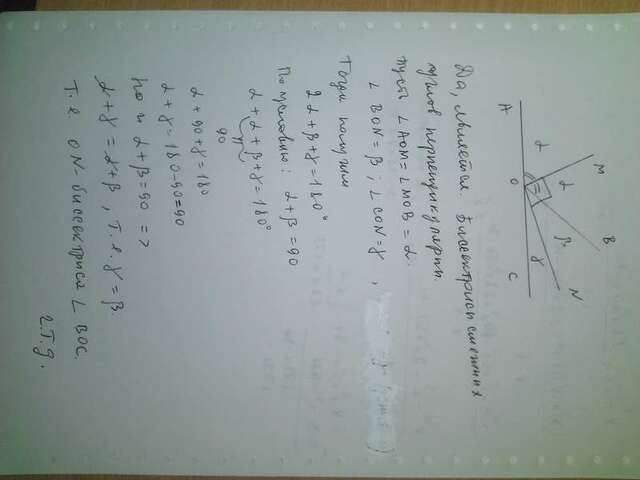 A
O
C
M
B
N
α
α
β
γ
Да, является. Биссектрисы смежных
углов перпендикулярны.
пусть ∠AOM = ∠MOB = α.
∠BON = β ; ∠CON = γ ,
Тогда получим
2α + β + γ = 180°
По условию: α + β = 90
α + α + β + γ = 180°
90
α + 90 + γ = 180
α + γ = 180 - 90 = 90
но и α + β = 90 =>
α + γ = α + β , т.е. γ = β.
Т.е ON - биссектриса ∠ BOC.
ч.т.д.